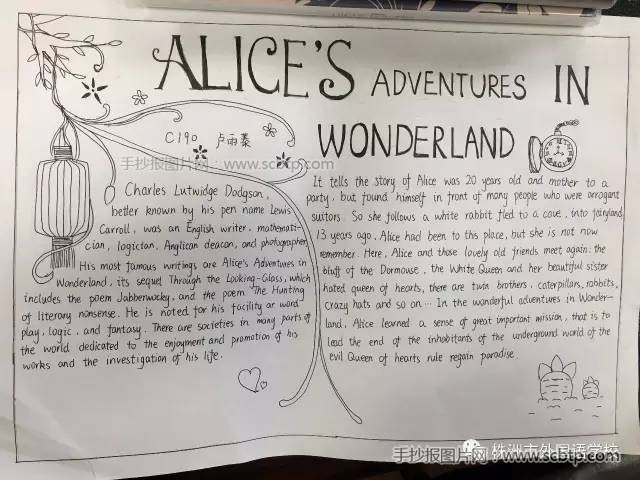 ALICE'S ADVENTURES IN
WONDERLAND
C190 卢雨蓁
手抄报图片网:www.scbtp.com
Charles Lutwidge Dodgson,
better known by his pen name Lewis
Carroll, was an English writer, mathemati-
cian, logictan, Anglican deacon, and photographer
His most famous writings are Alice's Adventures in
Wonderland, its sequel Through the Looking-Glass, which
includes the poem Jabberwocky, and the poem The Hunting
of literary nonsense. He is noted for his facility ar word
play, logic, and fantasy. There are societies in many parts of
the world dedicated to the enjoyment and promotion of his
works and the investigation of his life.
It tells the story of Alice was 20 years old and mother to a
party, but found himself in front of many people who were arrogant
suitors. So she follows a white rabbit fled to a cave, into fairyland
13 years ago, Alice had been to this place, but she is not now
remember. Here, Alice and those lovely old friends meet again: the
bluff of the Dormouse, the White Queen and her beautiful sister
hated queen of hearts, there are twin brothers, caterpillars, rabbits,
crazy hats and so on... In the wonderful adventures in Wonder-
land, Alice learned a sense of great important mission, that is to
lead the end of the inhabitants of the underground world of the
evil Queen of hearts rule regain paradise.
株洲市外国语学校
手抄报图片网:www.scbtp.com